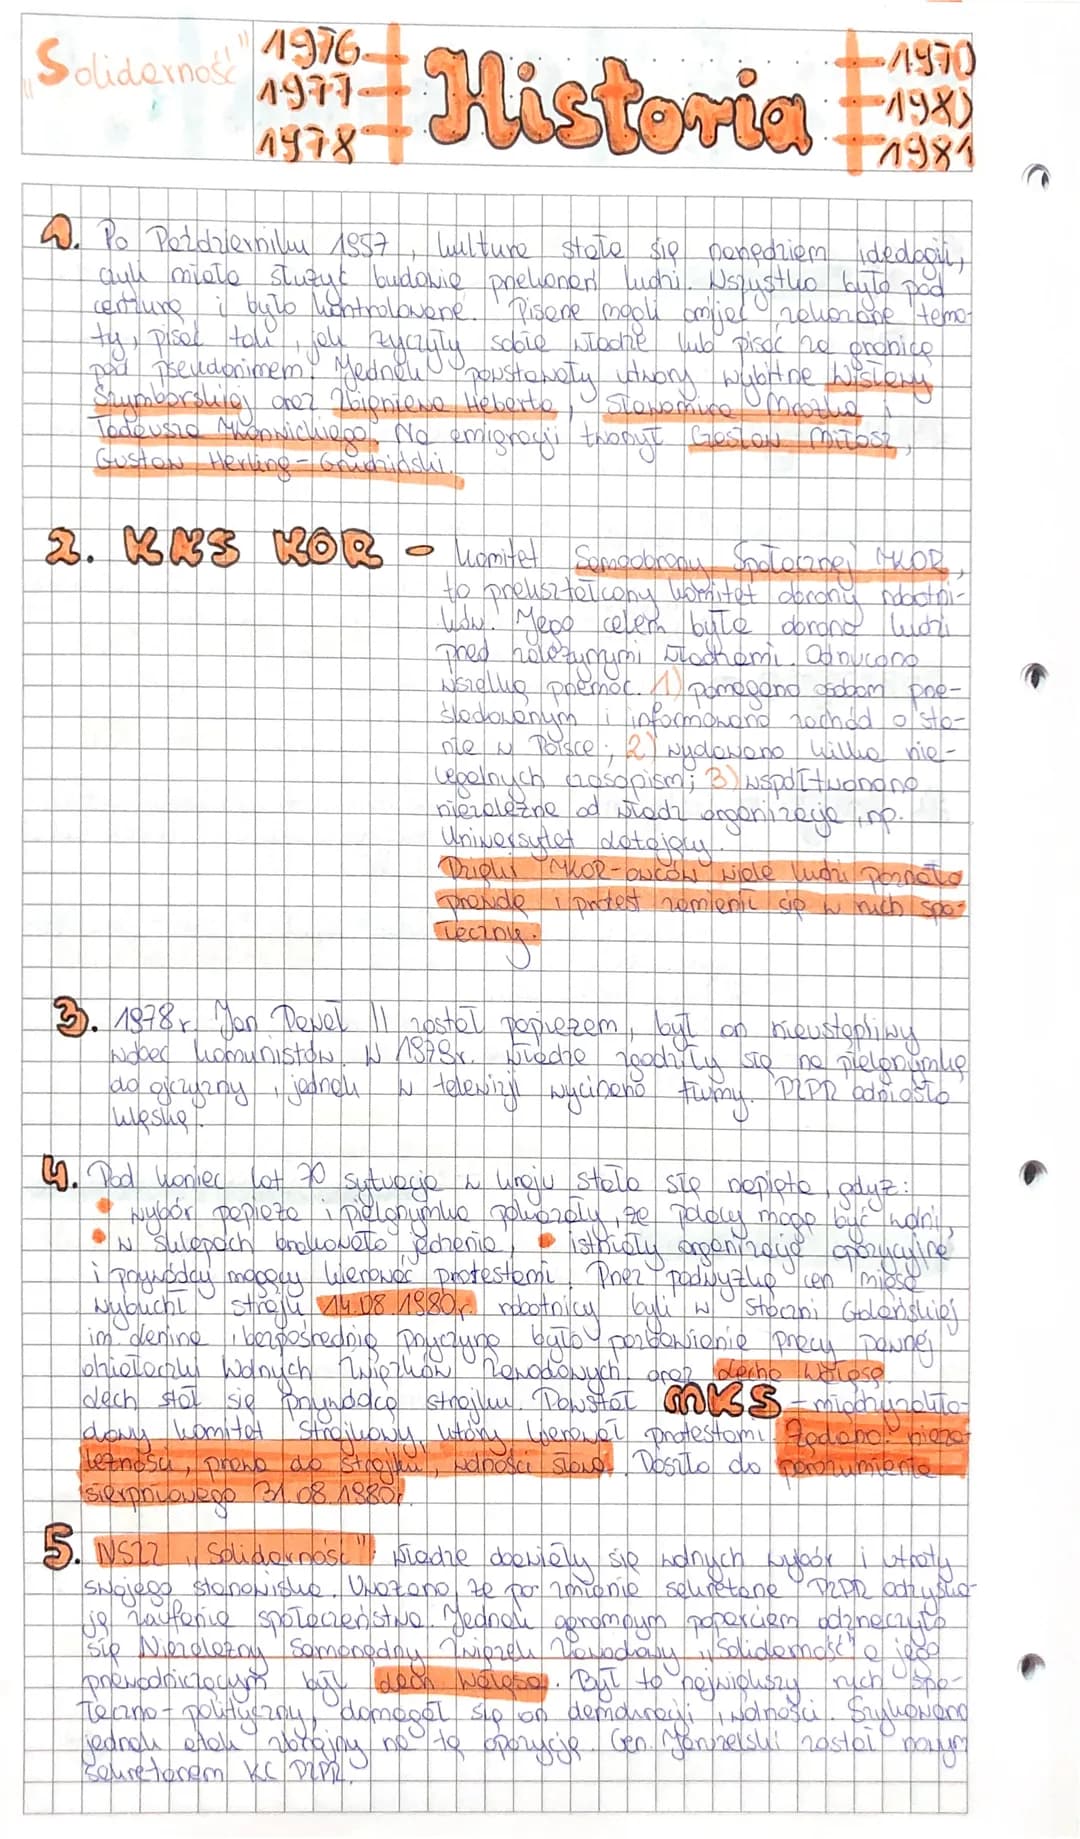 „Solidarność"
1976
1977
1978
Historia
1970
1980
1981
1. Po Październiku 1957, kultura stała się narzędziem ideologii,
czyli miała służyć budowie przekonań ludzi. Wszystko było pod
cenzurą i było kontrolowane. Pisarze mogli omijać zakazane tema-
ty, pisać tak, jak życzyły sobie władze lub pisać za granicą
pod pseudonimem. Jednak powstawały utwory wybitne Wisławy
Szymborskiej oraz Zbigniewa Heberta, Sławomira Mrożka i
Tadeusza Konwickiego. Na emigracji tworzył Czesław Miłosz,
Gustaw Herling-Grudziński.
2. KKS KOR - komitet Samoobrony Społecznej "KOR,
to przekształcony komitet obrony robotni-
ków. Jego celem była obrona ludzi
przed władzami. Odrzucano
wszelką przemoc. 1) pomagano osobom prze-
śladowanym i informowano zachód o sta-
nie w Polsce; 2) wydawano kilka nie-
legalnych czasopism; 3) współtworzono
niezależne od władz organizacje, np.
Uniwersytet Latający.
Dzięki KOR-owcom wiele ludzi poznało
prawdę i protest zamienił się w ruch spo-
łeczny.
3. 1978r. Jan Paweł II został papieżem, był on nieustępliwy
wobec komunistów. W 1979r. władze zgodziły się na pielgrzymkę
do ojczyzny, jednak w telewizji wycinano tłumy. PZPR odniosło
klęskę.
4. Pod koniec lat 70 sytuacja w kraju stała się napięta, gdyż:
• wybór papieża i pielgrzymka pokazały, że polacy mogą być wolni,
• w sklepach brakowało jedzenia, • istniały organizacje opozycyjne
i przywódcy mogący kierować protestami. Przez podwyżkę cen mięsa
wybuchł strajk 14.08.1980r. robotnicy byli w Stoczni Gdańskiej
im. Lenina, bezpośrednią przyczyną było pozbawienie pracy pewnej
działaczki Wolnych Związków Zawodowych oraz Lecha Wałęsę.
Lech stał się przywódcą strajku. Powstał MKS - międzyzakła-
dowy komitet Strajkowy, który kierował protestami. Żądano: nieza-
leżności, prawa do strajku, wolności słowa. Doszło do porozumienia
sierpniowego 31.08.1980r.
5. NSZZ „Solidarność": władze obawiały się wolnych wybór i utraty
swojego stanowiska. Uważano, że po zmianie sekretarza PZPR odzyska-
ją zaufanie społeczeństwa. Jednak ogromnym poparciem odznaczył
się Niezależny Samorządny Związek Zawodowy „Solidarność" a jego
przewodniczącym był Lech Wałęsa. Był to największy ruch spo-
łeczno-polityczny, domagał się on demokracji, wolności. Szykowano
jednak atak zbrojny na tę opozycję. Gen. Jaruzelski został nowym
sekretarzem KC PZPR.